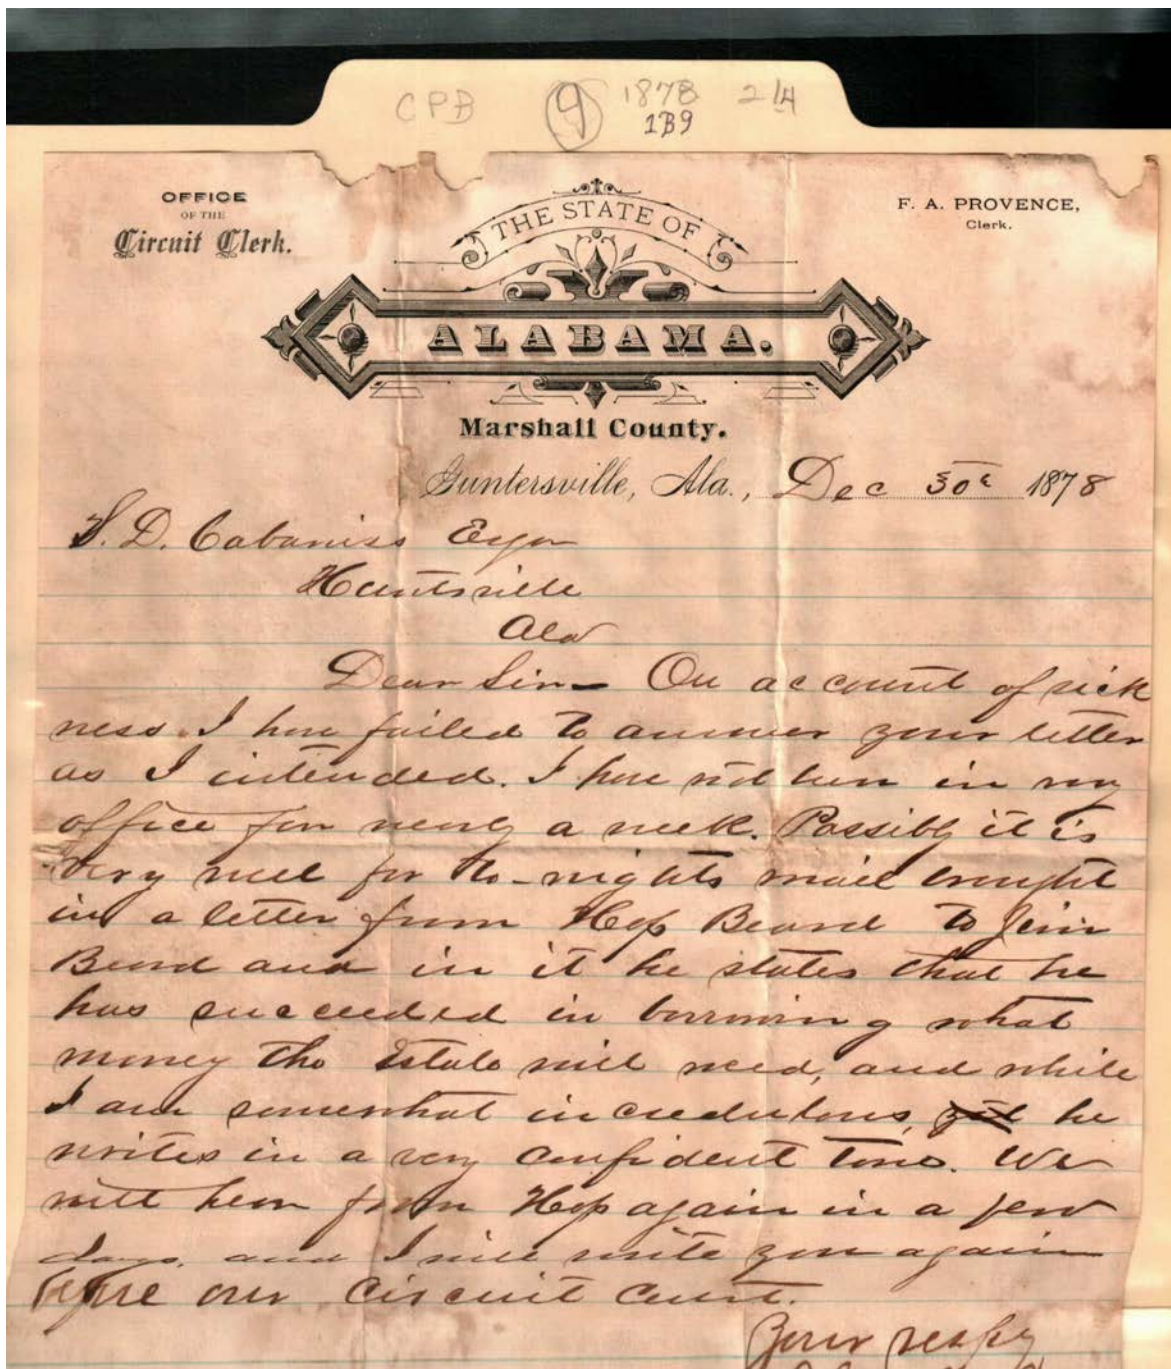 CPB 9 1878 2/4
1B9
OFFICE
OF THE
Circuit Clerk.
THE STATE OF
ALABAMA.
F. A. PROVENCE,
Clerk.
Marshall County.
Guntersville, Ala., Dec 30th 1878
S. D. Cabaniss Esqr
Huntsville
Ala
Dear Sir - On account of sick
ness I have failed to answer your letter
as I intended. I have not been in my
office for nearly a week. Possibly it is
very well for to-nights mail brought
in a letter from Hop Beard to Jim
Beard and in it he states that he
has succeeded in borrowing what
money the Estate will need, and while
I am somewhat incredulous, yet he
writes in a very confident tone. We
will hear from Hop again in a few
days, and I will write you again
before our Circuit Court.
Your respy